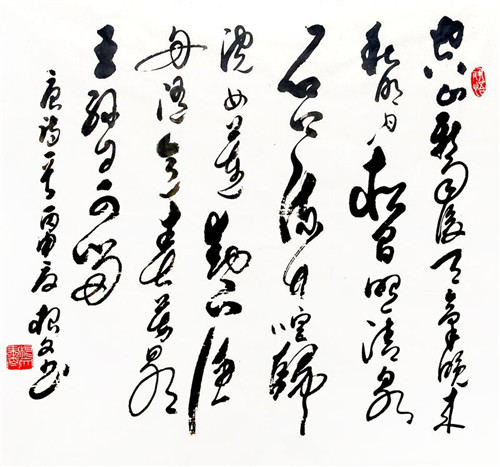 空山新雨後天氣晚来
秋明月松間照清泉
石上流竹喧歸
浣女蓮動下漁
舟随意春芳歇
王孫自可留
唐诗一首丙申